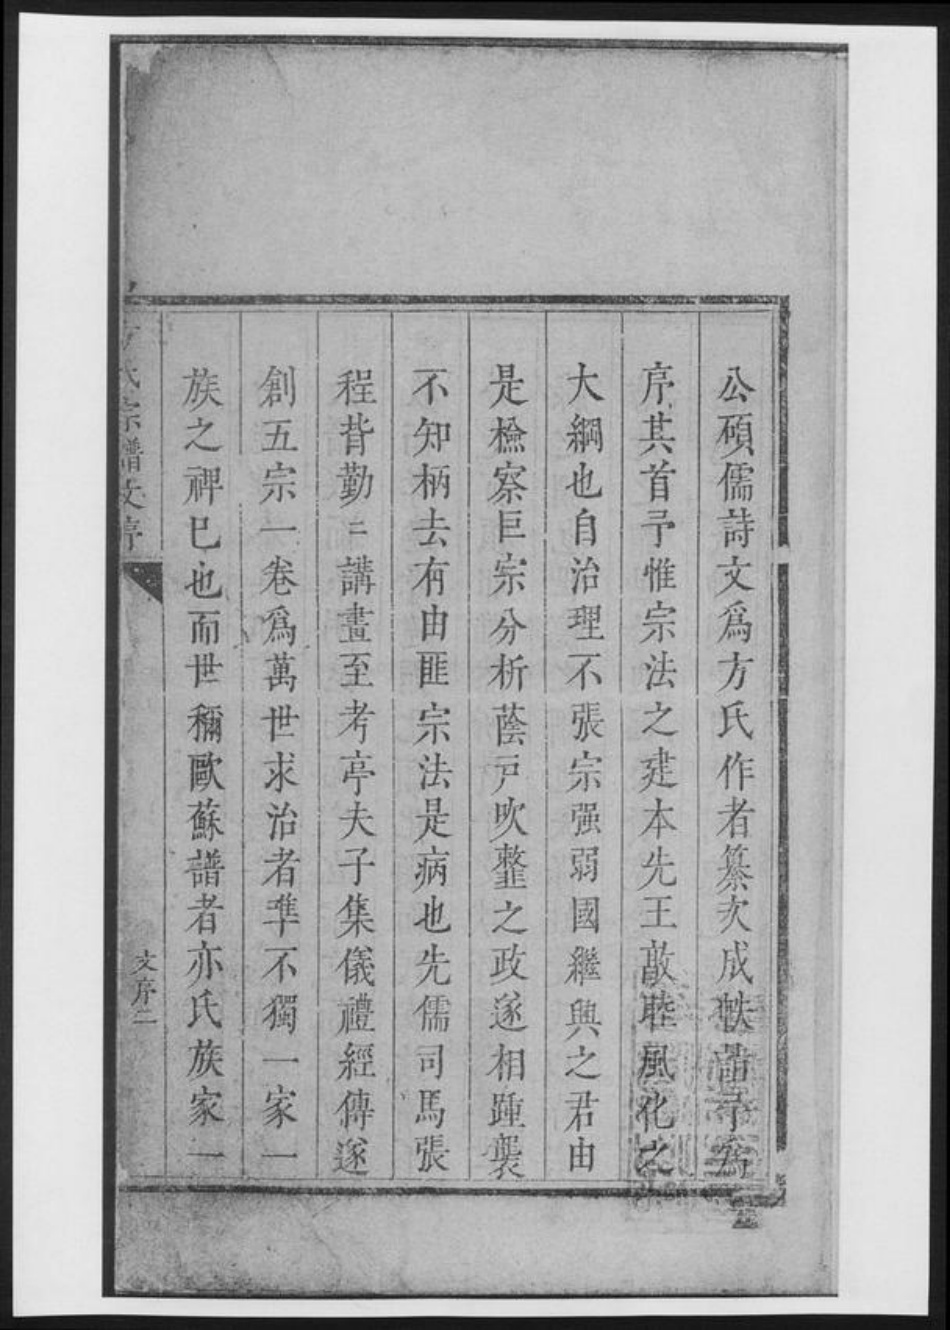 公碩儒詩文爲方氏作者纂次成帙請予爲
序其首予惟宗法之建本先王敦睦風化之
大綱也自治理不張宗强弱國繼興之君由
是檢察巨宗分析蔭戸吹虀之政遂相踵襲
不知柄去有由匪宗法是病也先儒司馬張
程昔勤二講畫至考亭夫子集儀禮經傳遂
創五宗一卷爲萬世求治者凖不獨一家一
族之禆巳也而世穪歐蘇譜者亦氏族家一
方氏宗譜文序
文序二